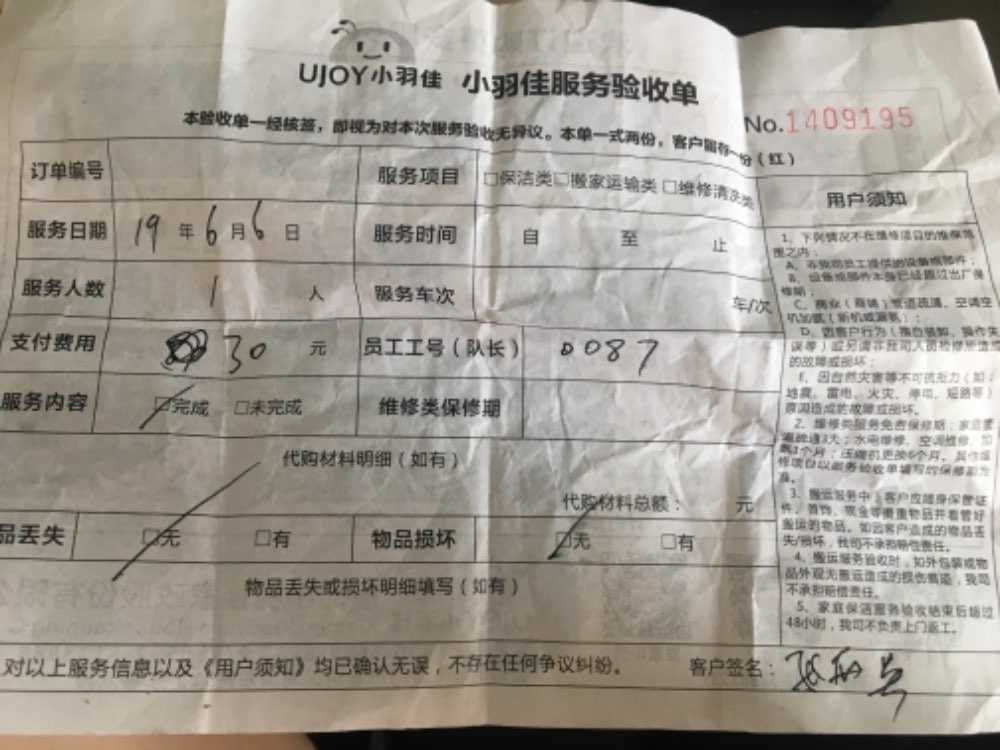 UJOY小羽佳 小羽佳服务验收单
No.1409195
本验收单一经核签，即视为对本次服务验收无异议。本单一式两份，客户留存一份（红）
订单编号 服务项目 □保洁类□搬家运输类□维修清洗类
服务日期 19年6月6日 服务时间 自 至 止
服务人数 1 人 服务车次 车/次
支付费用 30 元 员工工号（队长） 0087
服务内容 □完成 □未完成 维修类保修期
代购材料明细（如有）
代购材料总额： 元
品丢失 □无 □有 物品损坏 □无 □有
物品丢失或损坏明细填写（如有）
对以上服务信息以及《用户须知》均已确认无误，不存在任何争议纠纷。 客户签名：
用户须知
1、下列情况不在维修项目的维保范
围之内：
A、非我司员工提供的设备或部件；
B、设备或部件本身已经超过出厂保
修期；
C、商业（商铺）管道疏通、空调空
机加氨（新机或漏氨）；
D、因客户行为（擅自装卸、操作失
误等）或另请非我司人员检修所造成
的故障或损坏；
E、因自然灾害等不可抗拒力（如：
地震、雷电、火灾、停电、短路等）
原因造成的故障或损坏。
2、维修类服务免费保修期：家庭管
道疏通3天；水电维修、空调维修、加
氨1个月；压缩机更换6个月。其他维
修项目以服务验收单填写的保修期为
准。
3、搬运服务中，客户应随身保管证
件、首饰、现金等贵重物品并看管好
搬运的物品。如因客户造成的物品丢
失/损坏，我司不承担赔偿责任。
4、搬运服务验收时，如外包装或物
品外观无搬运造成的损伤痕迹，我司
不承担赔偿责任。
5、家庭保洁服务验收结束后超过
48小时，我司不负责上门返工。